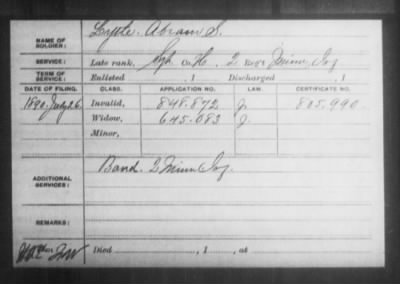 NAME OF SOLDIER: Lyste, Abram S.
SERVICE: Late rank, Co. H, 2 Reg't Minn Inf
TERM OF SERVICE: Enlisted , 1 Discharged , 1
DATE OF FILING. CLASS. APPLICATION NO. LAW. CERTIFICATE NO.
1890 July 26 Invalid, 848.872 J. 805.990
Widow, 645.083 J.
Minor,
ADDITIONAL SERVICES: Band. 2 Minn Inf.
REMARKS:
Died , 1 , at